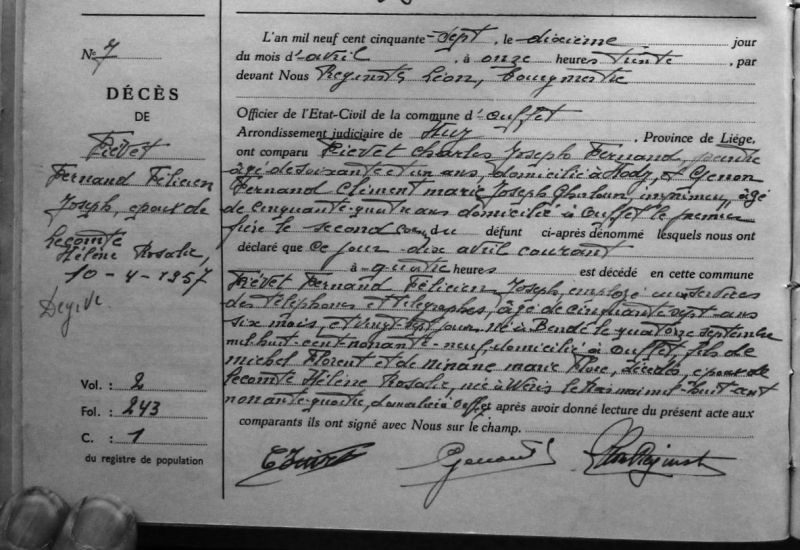 N° 7
DÉCÈS
DE
Fiévet
Fernand Félicien
Joseph, époux de
Lecomte
Hélène Rosalie,
10-4-1957
Vol. : 2
Fol. : 243
C. : 1
du registre de population
L'an mil neuf cent cinquante-sept, le dixième jour
du mois d'avril, à onze heures trente, par
devant Nous Reginster Léon, bourgmestre
Officier de l'Etat-Civil de la commune d'Ouffet
Arrondissement judiciaire de Huy, Province de Liége,
ont comparu Fiévet Charles Joseph Fernand, peintre
âgé de soixante et un ans, domicilié à Mody, et Genon
Fernand Clément Marie Joseph Ghislain, imprimeur, âgé
de cinquante-quatre ans domicilié à Ouffet le premier
frère le second défunt ci-après dénommé lesquels nous ont
déclaré que ce jour dix avril courant
à quatre heures est décédé en cette commune
Fiévet Fernand Félicien Joseph, employé aux services
des téléphones et télégraphes, âgé de cinquante-sept ans
six mois, et vingt-sept jours, né à Bende le quatorze septembre
mil huit-cent-nonante-neuf, domicilié à Ouffet, fils de
Michel Florent et de Ninane Marie décédés, époux de
Lecomte Hélène Rosalie, née à Wéris le trois mai mil-huit-cent
nonante-quatre, domiciliée Ouffet après avoir donné lecture du présent acte aux
comparants ils ont signé avec Nous sur le champ.